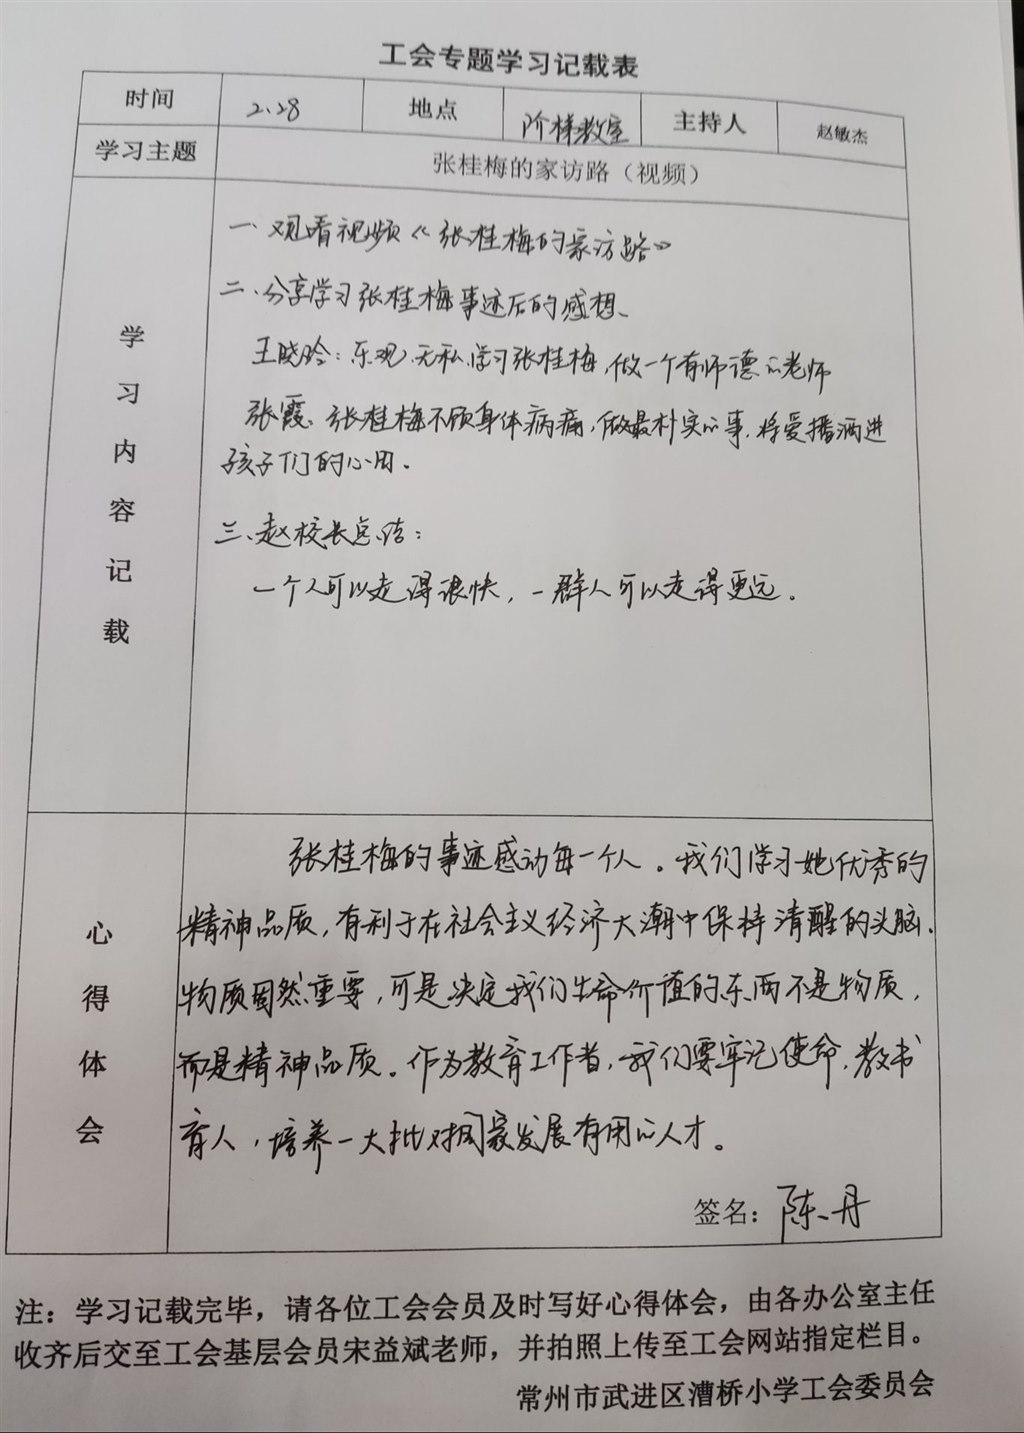 工会专题学习记载表
时间 2.28 地点 阶梯教室 主持人 赵敏杰
学习主题 张桂梅的家访路（视频）
学习内容记载
一、观看视频《张桂梅的家访路》
二、分享学习张桂梅事迹后的感想、
王晓玲：乐观、无私、学习张桂梅，做一个有师德的老师
张霞：张桂梅不顾身体病痛，做最朴实的事，将爱播洒进
孩子们的心田。
三、赵校长总结：
一个人可以走得很快，一群人可以走得更远。
心得体会
张桂梅的事迹感动每一个人。我们学习她优秀的
精神品质，有利于在社会主义经济大潮中保持清醒的头脑。
物质固然重要，可是决定我们生命价值的东西不是物质，
而是精神品质。作为教育工作者，我们要牢记使命，教书
育人，培养一大批对国家发展有用的人才。
签名：陈丹
注：学习记载完毕，请各位工会会员及时写好心得体会，由各办公室主任
收齐后交至工会基层会员宋益斌老师，并拍照上传至工会网站指定栏目。
常州市武进区漕桥小学工会委员会